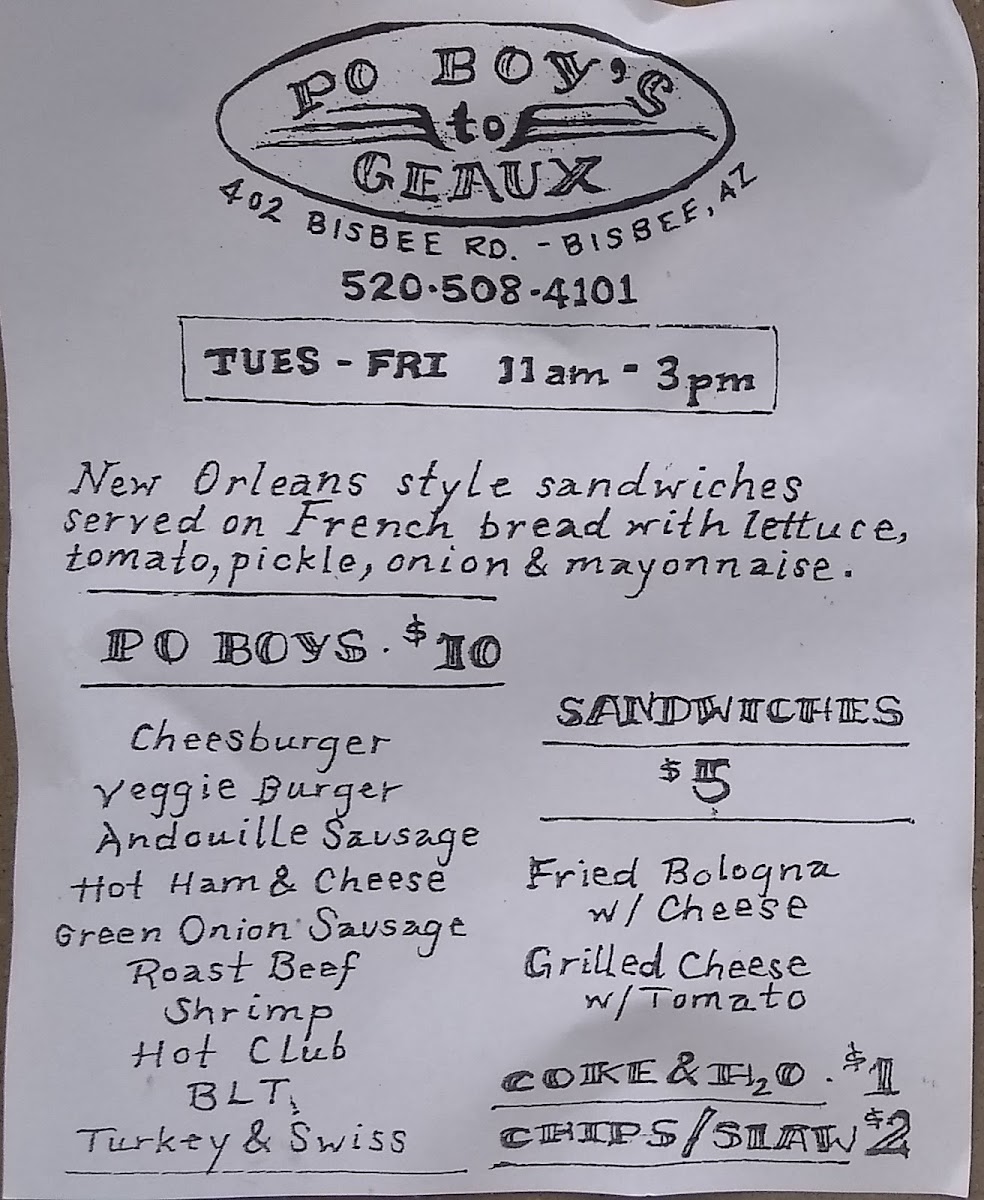 PO BOY'S
to
GEAUX
402 BISBEE RD. - BISBEE, AZ
520·508-4101
TUES - FRI 11am - 3pm
New Orleans style sandwiches
served on French bread with lettuce,
tomato, pickle, onion & mayonnaise.
PO BOYS. $10
Cheesburger
Veggie Burger
Andouille Sausage
Hot Ham & Cheese
Green Onion Sausage
Roast Beef
Shrimp
Hot Club
BLT
Turkey & Swiss
SANDWICHES
$5
Fried Bologna
w/ Cheese
Grilled Cheese
w/ Tomato
COKE & H₂O. $1
CHIPS/SLAW $2